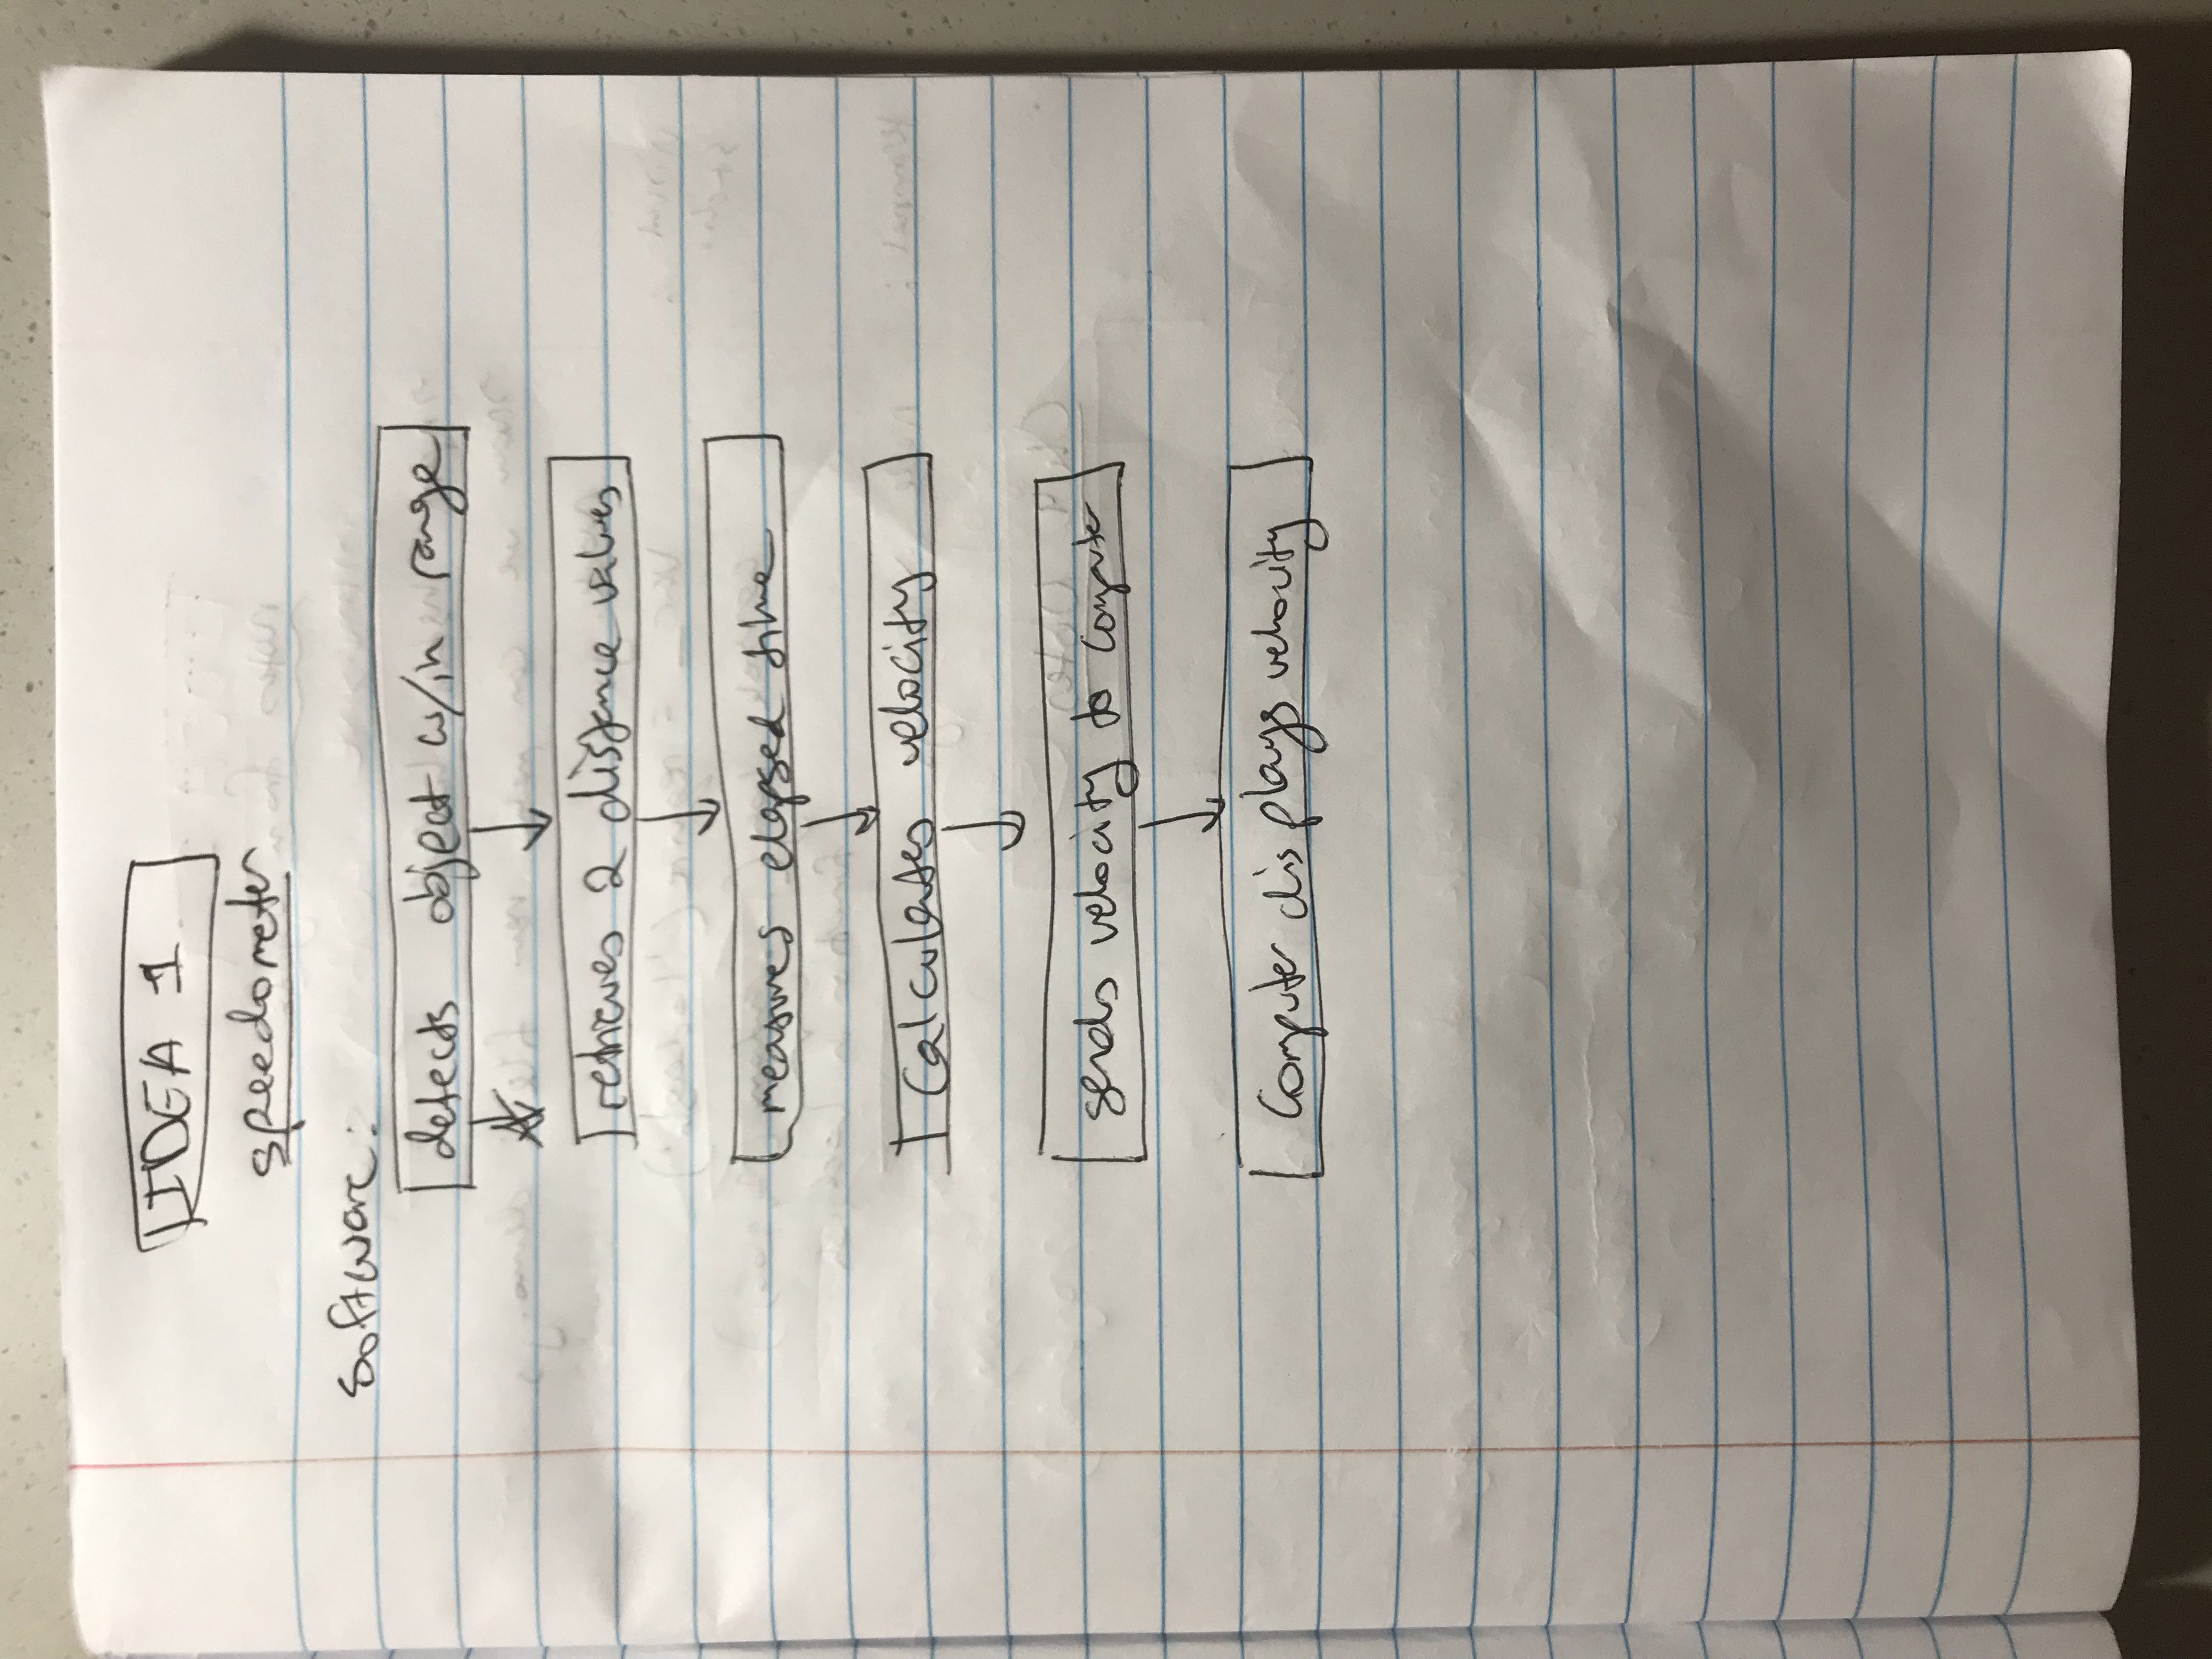 IDEA 1
speedometer
Software:
detects object w/in range
retrieves 2 distance values
measures elapsed time
Calculates velocity
sends velocity to computer
Computer displays velocity